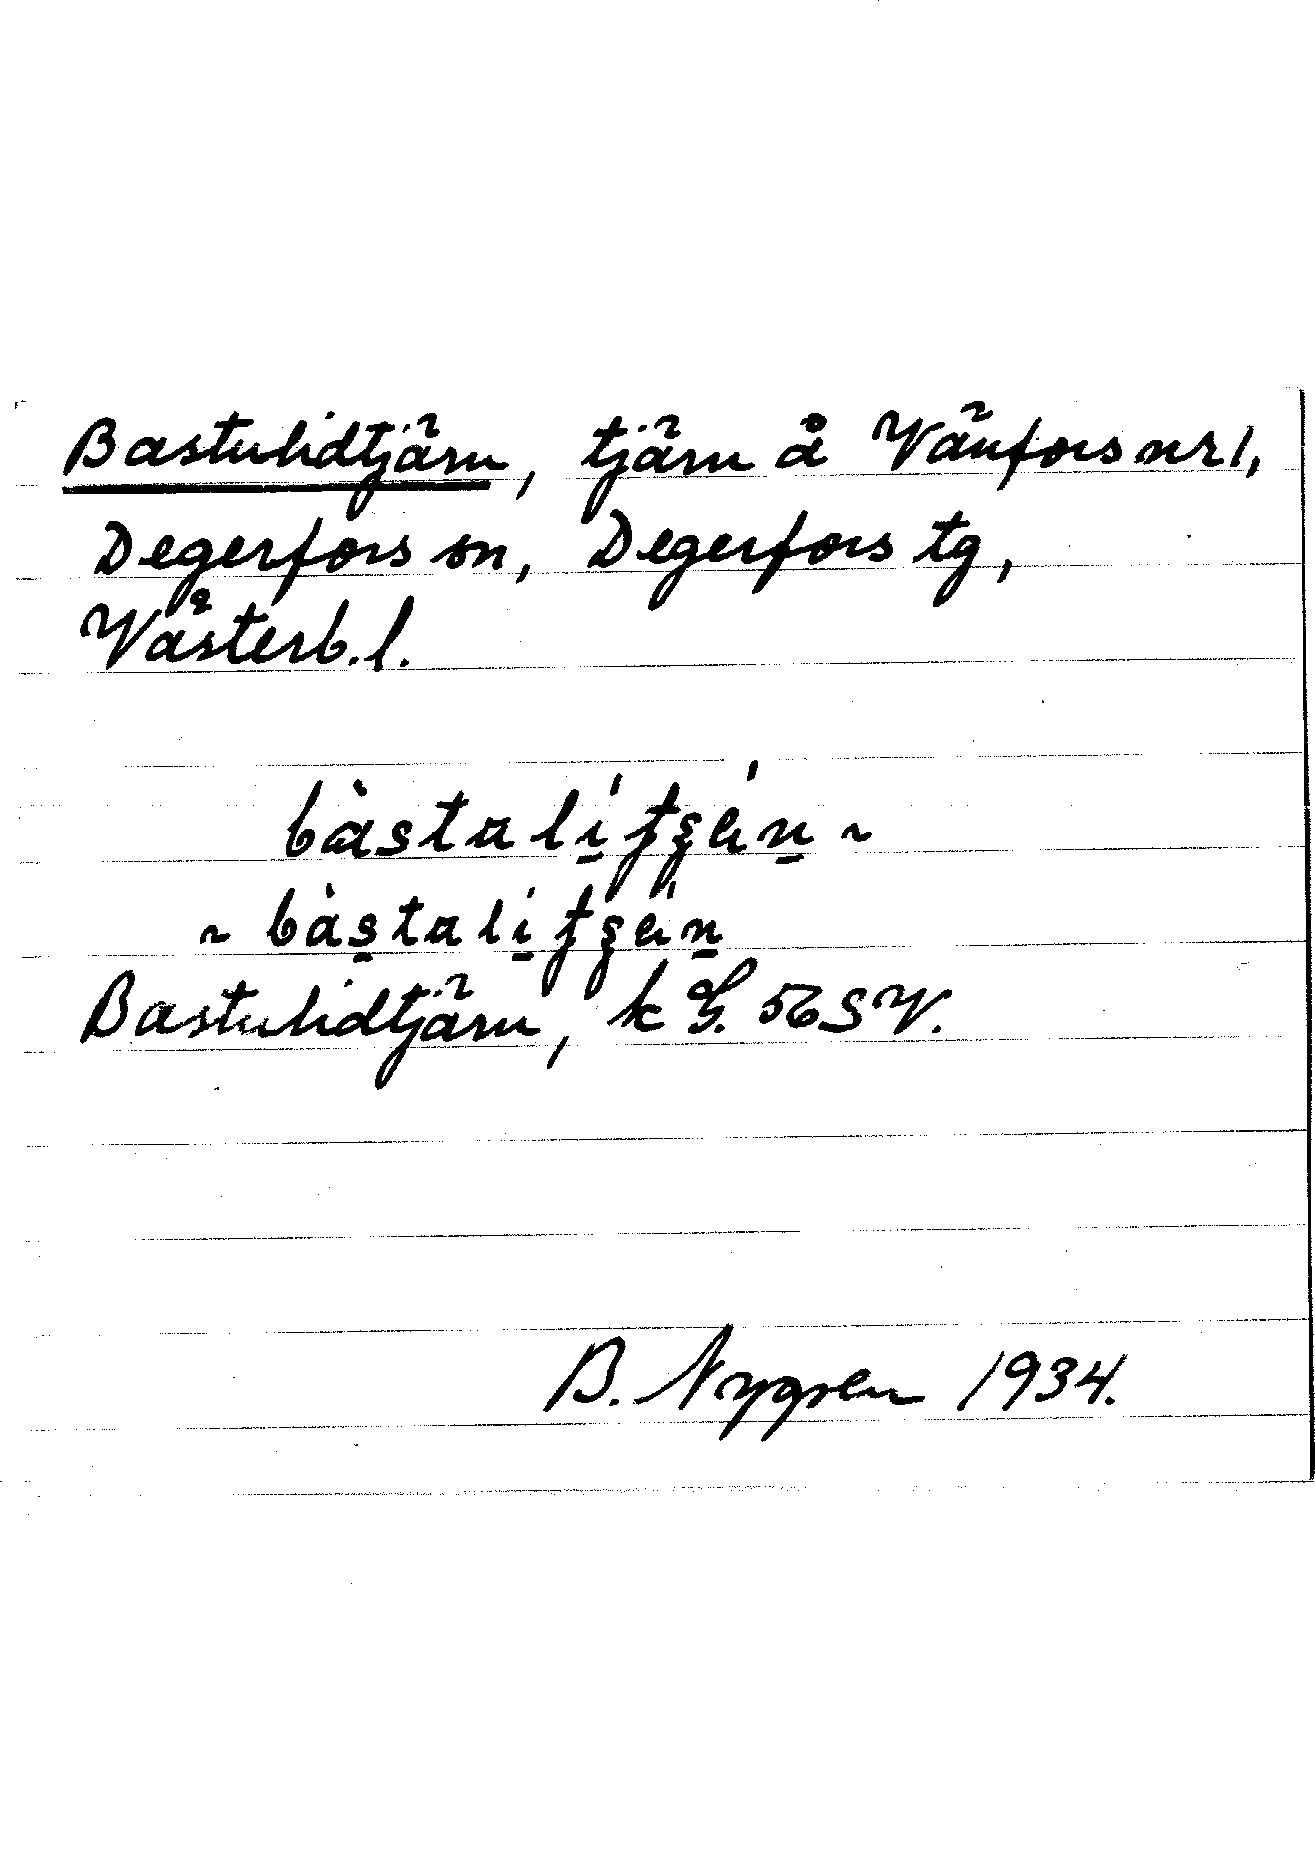 Bastulidtjärn, tjärn å Vänfors nr 1,
Degerfors sn, Degerfors tg,
Västerb. l.
Bastulidtjärn, k G. 56 SV.
B. Nygren 1934.